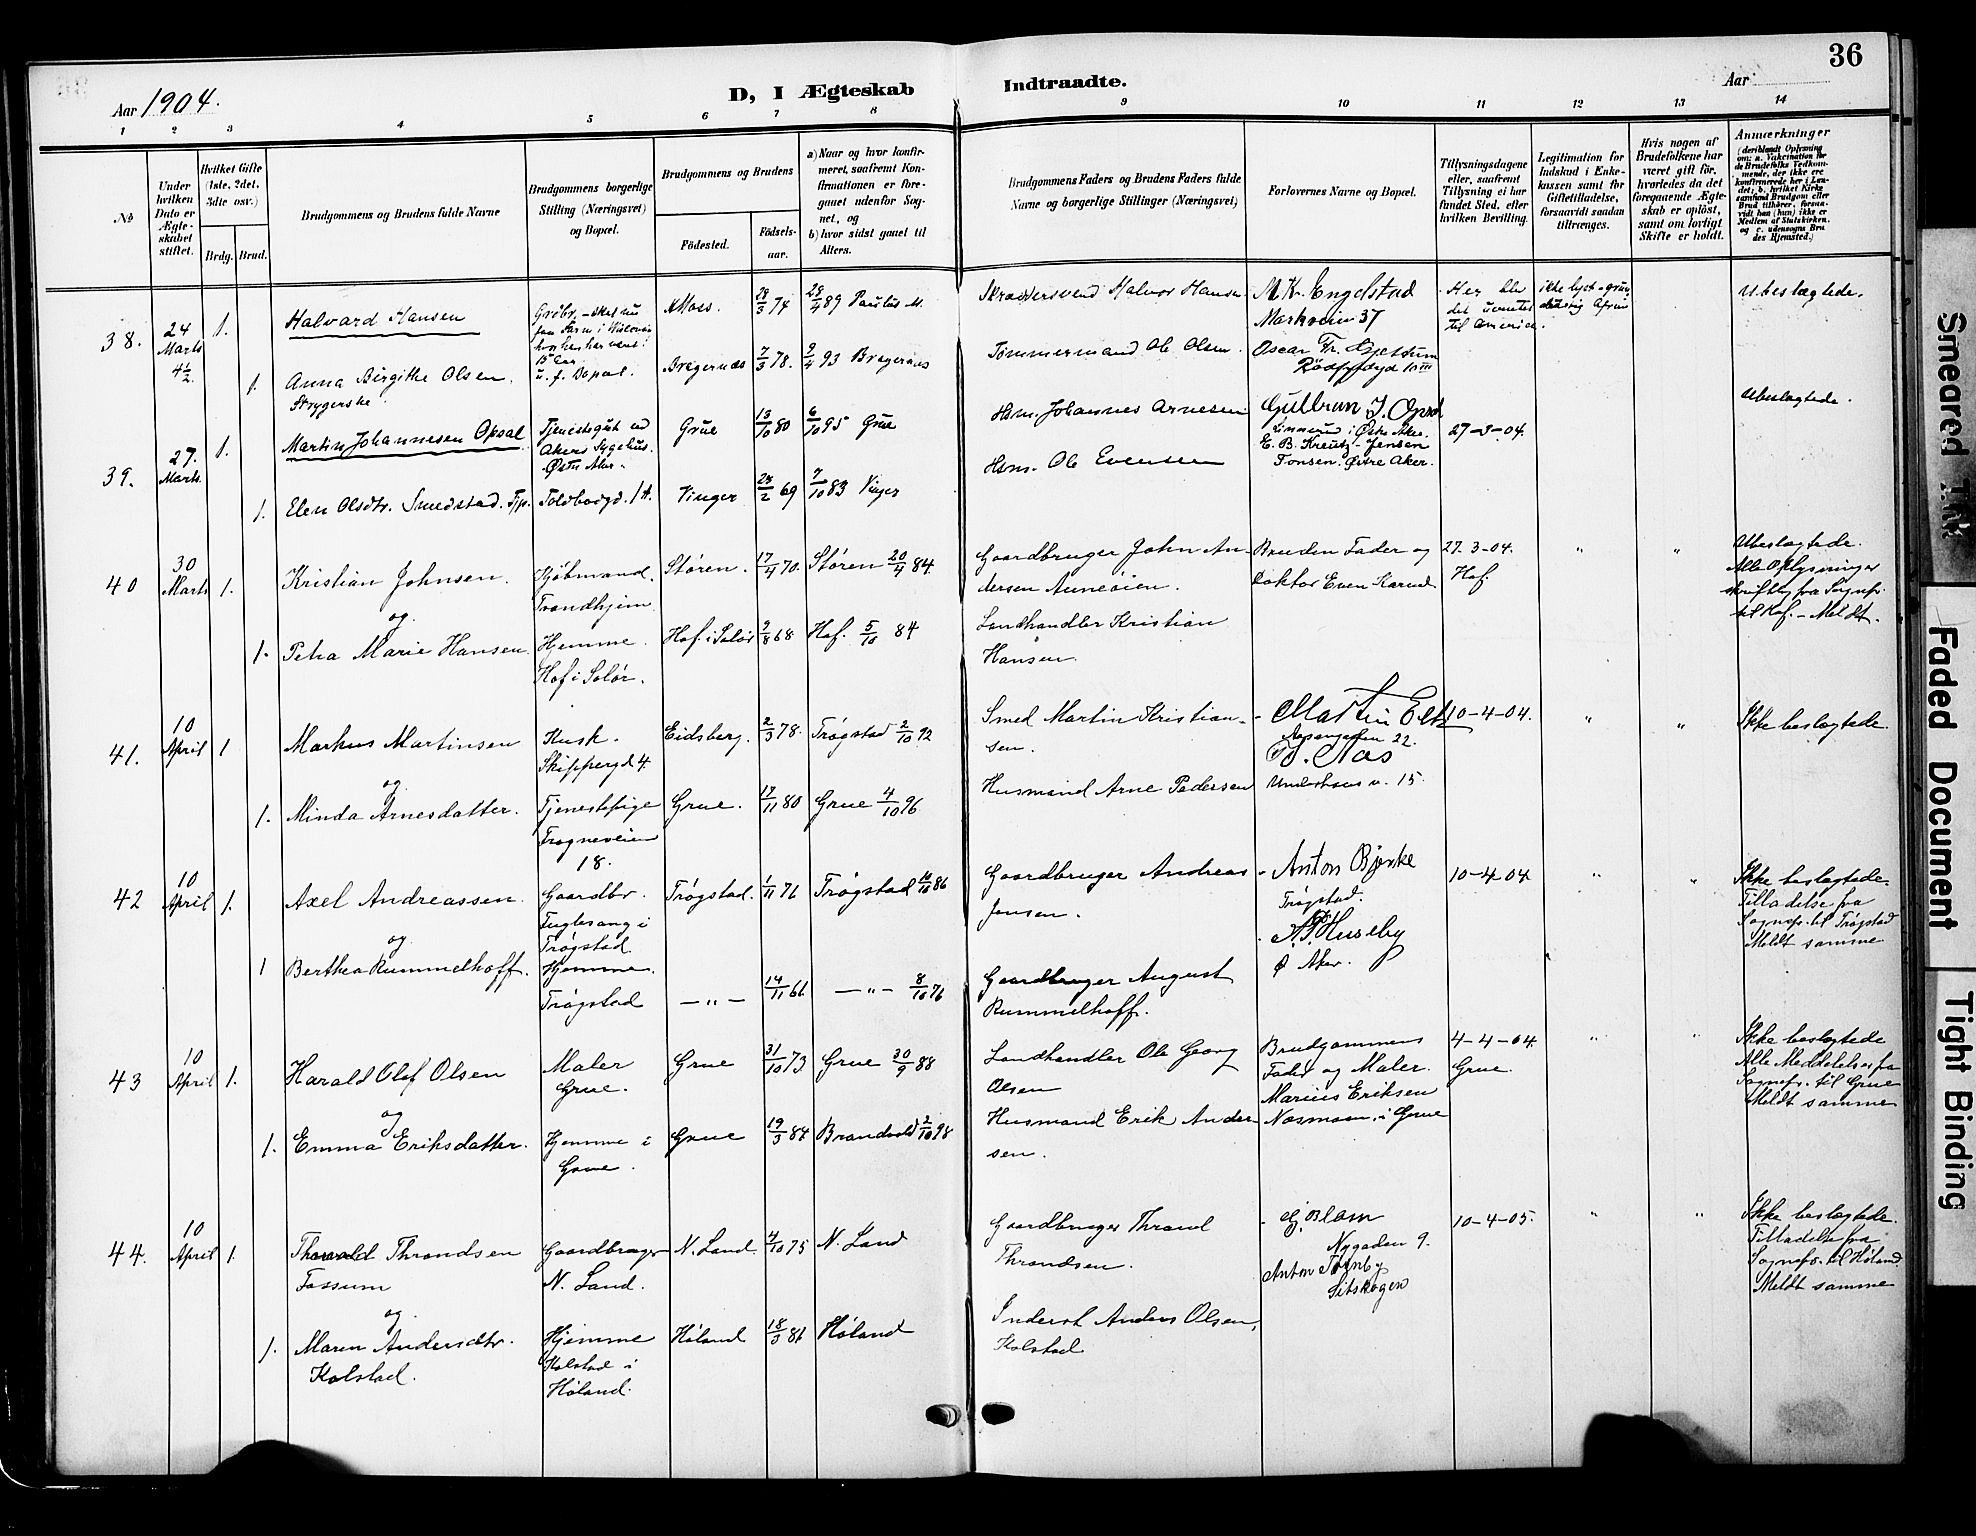 36
Aar 1904.
D, I Ægteskab Indtraadte.
Aar
1 2 3 4 5 6 7 8 9 10 11 12 13 14
No
Under hvilken Dato er Ægteskabet stiftet.
Hvilket Gifte (1ste, 2det, 3die osv.)
Brdg. Brud.
Brudgommens og Brudens fulde Navne
Brudgommens borgerlige Stilling (Næringsvei) og Bopæl.
Brudgommens og Brudens
Fødested.
Fødselsaar.
a) Naar og hvor konfirmeret, saafremt Konfirmationen er foregaaet udenfor Sognet, og
b) hvor sidst gaaet til Alters.
Brudgommens Faders og Brudens Faders fulde Navne og borgerlige Stillinger (Næringsvei)
Forlovernes Navne og Bopæl.
Tillysningsdagene eller, saafremt Tillysning ei har fundet Sted, efter hvilken Bevilling.
Legitimation for Indskud i Enkekassen samt for Giftetilladelse, forsaavidt saadan tiltrænges.
Hvis nogen af Brudefolkene har været gift før, hvorledes da det foregaaende Ægteskab er opløst, samt om lovligt Skifte er holdt.
Anmærkninger
38. 24 Marts 4½ 1. Halvard Hansen
Moss. 28/3 74 28/4 89 Paulus M.
Skræddersvend Halvor Hansen
M. K. Engelstad
Markveien 37
Her blev det
til America.
ikke lyst
Ubeslægtede.
1. Anna Birgithe Olsen.
Strygerske
Bragernæs 7/3 78. 9/4 93 Bragernæs
Tømmermand Ole Olsen.
Oscar Fr.
39. 27. Marts. 1. Martin Johannesen Opsal
Tjenestegut ved
Akers Sygehus.
Østre Aker.
Grue 13/10 80 6/10 95 Grue
Hsm. Johannes Arnesen
Gulbran J. Opsal
Linnerud i Østre Aker.
E. B. Kreutz-Jensen
Tonsen. Østre Aker.
27-3-04.
Ubeslægtede.
1. Elen Olsdtr. Smedstad. Tjp.
Toldbodgd. 1 A.
Vinger 28/2 69 7/10 83 Vinger
Hsm. Ole Evensen
40 30 Marts 1. Kristian Johnsen.
og
Kjøbmand.
Trondhjem
Støren. 17/4 70. Støren 20/4 84.
Gaardbruger John Andersen Aunesien.
Bruden Fader og
Doktor Even Karud
27. 3-04.
Hof.
" "
Ubeslægtede.
Alle Oplysninger
skriftlig fra Sognepr.
til Hof. - Meldt.
1. Petra Marie Hansen
Hjemme
Hof i Solør.
Hof i Solør 9/8 68 Hof. 5/10 84
Landhandler Kristian
Hansen.
41. 10 April 1 Markus Martinsen
og
Kusk.
Skippergd 4.
Eidsberg. 2/3 78. Trøgstad 2/10 92
Smed Martin Kristiansen.
Martin Eek
22.
15.
10-4-04.
" "
Ikke beslægtede
1. Minda Arnesdatter.
Tjenestepige
Frogneveien
18.
Grue. 17/11 80 Grue 4/10 96
Husmand Arne Pedersen
42 10 April 1. Axel Andreassen.
og
Gaardbr.
Fuglesang i
Trøgstad
Trøgstad. 1/11 76 Trøgstad 11/10 86
Gaardbruger Andreas
Jensen.
Anton Bjerke
Trøgstad.
A. P. Huseby
Ø Aker.
10-4-04
" "
Ikke beslægtede.
Tilladelse fra
Sognepr. til Trøgstad
Meldt samme
1 Berthea Rummelhoff.
Hjemme.
Trøgstad
— " — 14/11 61. — " — 8/10 76
Gaardbruger August
Rummelhoff.
43 10 April 1. Harald Olef Olsen
og
Maler
Grue.
Grue 31/10 73 Grue 30/9 88
Landhandler Ole Georg
Olsen
Brudgommens
Fader og Maler.
Marius Eriksen
Næsmoen i Grue
4-4-04.
Grue.
" "
Ikke beslægtede
Alle Meddelelser fra
Sognepr. til Grue
Meldt samme
1. Emma Eriksdatter.
Hjemme i
Grue.
Grue 19/3 84 Brandvold 2/10 98
Husmand Erik Andersen.
44. 10 April 1. Thorvald Thrandsen
Fossum
og
Gaardbruger
N. Land.
N. Land 4/10 75 N. Land
Gaardbruger Thrand
Thrandsen.
Blom
Nygaden 9.
Anton Tørnby
Setskogen
10-4-05.
" "
Ikke beslægtede.
Tilladelse fra
Sognepr. til Høland
Meldt samme
1. Maren Andersdtr.
Kolstad.
Hjemme
Kolstad i
Høland.
Høland 18/3 86 Høland
Inderst Anders Olsen,
Kolstad
Smeared Ink
Faded Document
Tight Binding